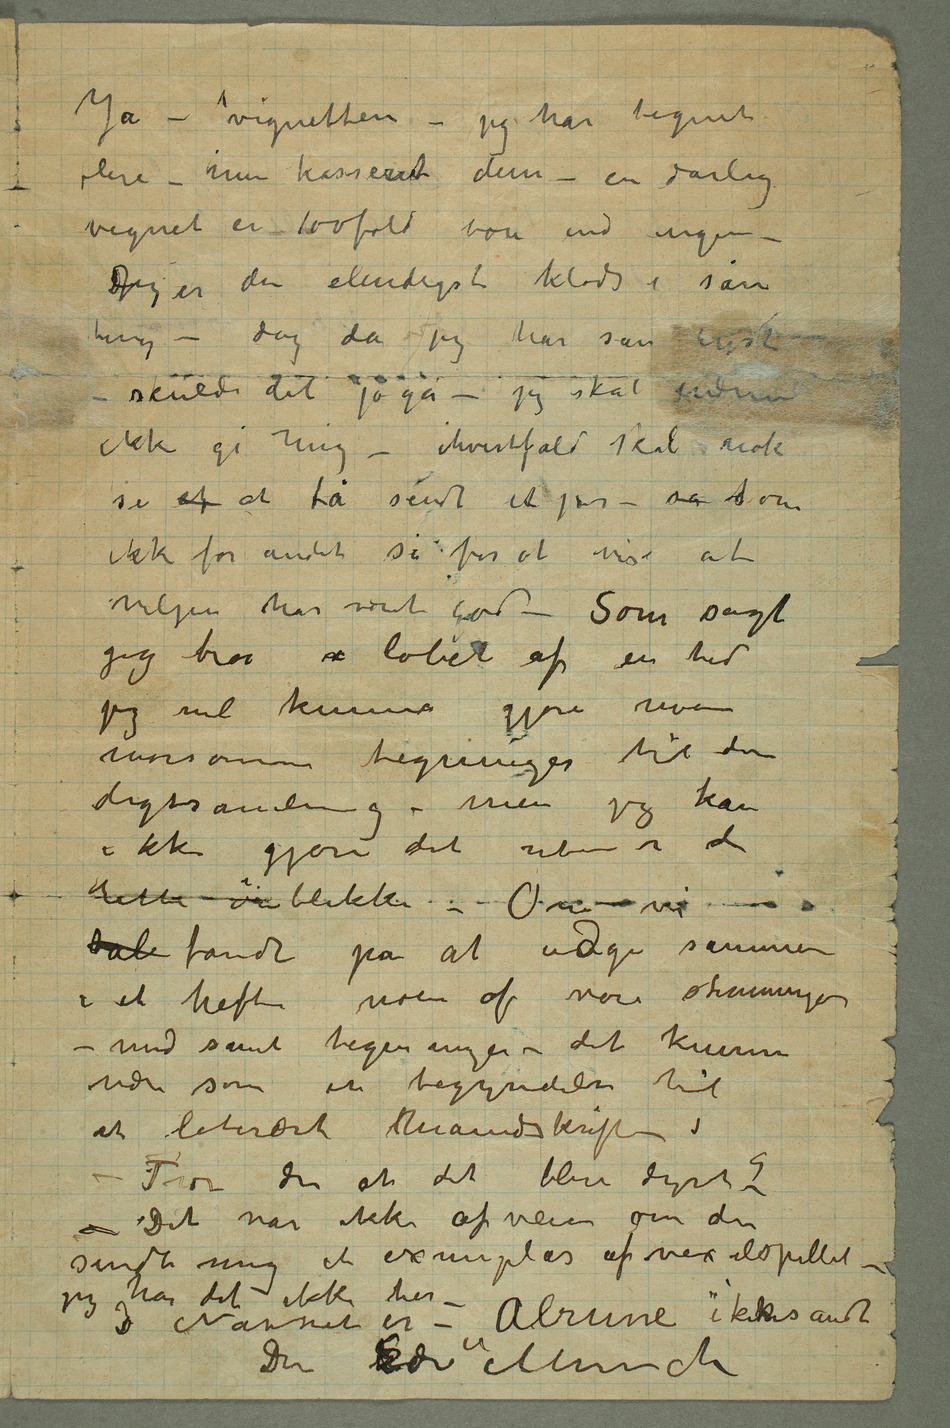 Ja – vignetten – jeg har tegnet
flere – men kassert dem – en dårlig
vignet er 100fold værre end ingen –
Jeg er den elendigste klods i sån
ting – dog da jeg har sån lyst
– skulde det jo gå – jeg skal endnu
ikke gi mig – ihvertfald skal nok
se af at få sendt et par – sa som
ikke for andet så for at vise at
viljen har været god – Som sagt
jeg tror x løbet af en tid
jeg vil kunne gjøre noen
morsomme tegninger til din
digtsamling – men jeg kan
ikke gjøre det uden i de
dette øieblikke – Om vi
tale fandt på at udgi sammen
i et hefte noen af vore stemninger
– med samt tegninger – det kunne
være som en begyndelse til
et literært Maanedskrift
– Tror du at det blir dyrt?
– Det var ikke afveien om du
sendte mig et exemplar af vexelspillet –
jeg har det ikke her –
Navnet er – Alrune ikkesandt
Din Edv Munch